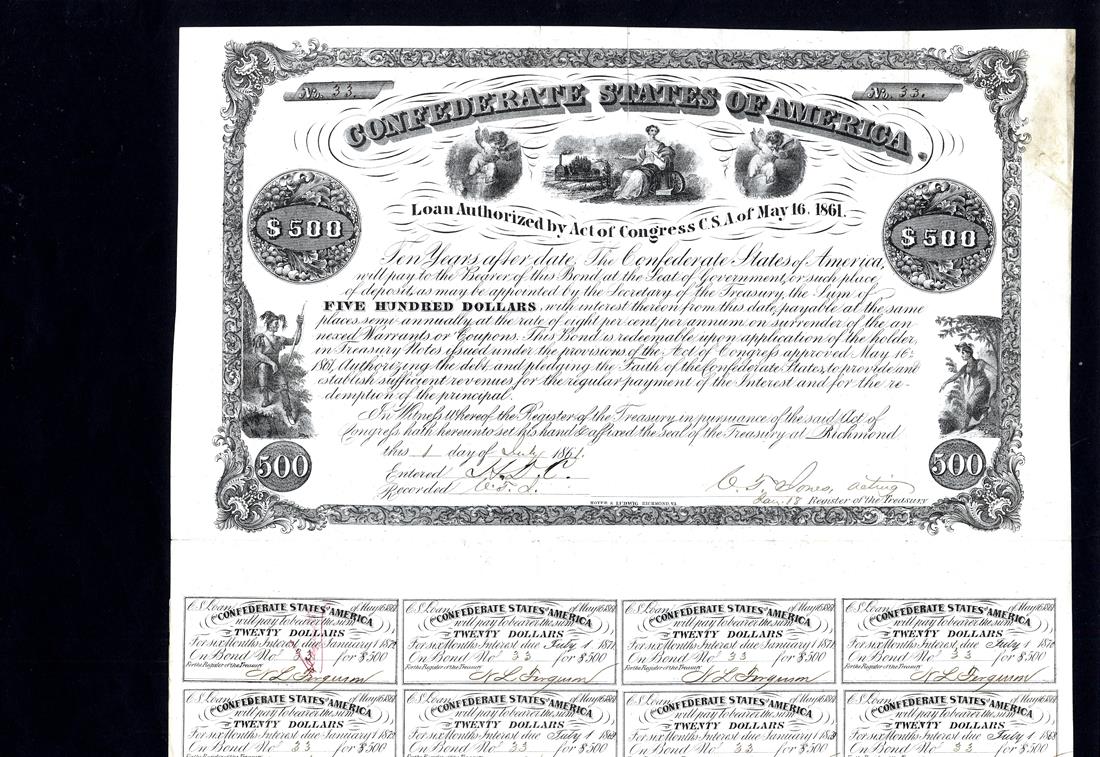 No. 33.
No. 33.
CONFEDERATE STATES OF AMERICA
Loan Authorized by Act of Congress C.S.A of May 16. 1861.
$500
$500
Ten Years after date, The Confederate States of America,
will pay to the Bearer of this Bond, at the Seat of Government, or such place
of deposit, as may be appointed by the Secretary of the Treasury, the Sum of
FIVE HUNDRED DOLLARS, with interest thereon from this date, payable at the same
places, semi-annually, at the rate of eight per cent per annum on surrender of the an-
nexed Warrants or Coupons. This Bond is redeemable upon application of the holder,
in Treasury Notes issued under the provisions of the Act of Congress approved May 16th
1861, Authorizing the debt, and pledging the Faith of the Confederate States, to provide and
establish sufficient revenues for the regular payment of the Interest and for the re-
demption of the principal.
In Witness Whereof the Register of the Treasury in pursuance of the said Act of
Congress hath hereunto set his hand & affixed the seal of the Treasury at Richmond
this 1 day of July 1861.
500
500
Entered
Recorded C. T. J.
C. T. Jones, acting
Register of the Treasury
HOYER & LUDWIG RICHMOND, VA
C S Loan of May 16 1861
CONFEDERATE STATES OF AMERICA
will pay to bearer the sum
TWENTY DOLLARS
For six Months Interest due January 1 1871
On Bond No 33 for $500
For the Register of the Treasury
N L Ferguson
C S Loan of May 16 1861
CONFEDERATE STATES OF AMERICA
will pay to bearer the sum
TWENTY DOLLARS
For six Months Interest, due July 1 1871
On Bond No 33 for $500
For the Register of the Treasury
N L Ferguson
C S Loan of May 16 1861
CONFEDERATE STATES OF AMERICA
will pay to bearer the sum
TWENTY DOLLARS
For six Months Interest due January 1 1871
On Bond No 33 for $500
For the Register of the Treasury
N L Ferguson
C S Loan of May 16 1861
CONFEDERATE STATES OF AMERICA
will pay to bearer the sum
TWENTY DOLLARS
For six Months Interest, due July 1 1870
On Bond No 33 for $500
For the Register of the Treasury
N L Ferguson
C S Loan of May 16 1861
CONFEDERATE STATES OF AMERICA
will pay to bearer the sum
TWENTY DOLLARS
For six Months Interest due January 1
On Bond No 33 for $500
For the Register of the Treasury
C S Loan of May 16 1861
CONFEDERATE STATES OF AMERICA
will pay to bearer the sum
TWENTY DOLLARS
For six Months Interest due July 1 1869
On Bond No 33 for $500
For the Register of the Treasury
C S Loan of May 16 1861
CONFEDERATE STATES OF AMERICA
will pay to bearer the sum
TWENTY DOLLARS
For six Months Interest due January 1 1869
On Bond No 33 for $500
For the Register of the Treasury
C S Loan of May 16 1861
CONFEDERATE STATES OF AMERICA
will pay to bearer the sum
TWENTY DOLLARS
For six Months Interest due July 1 1868
On Bond No 33 for $500
For the Register of the Treasury